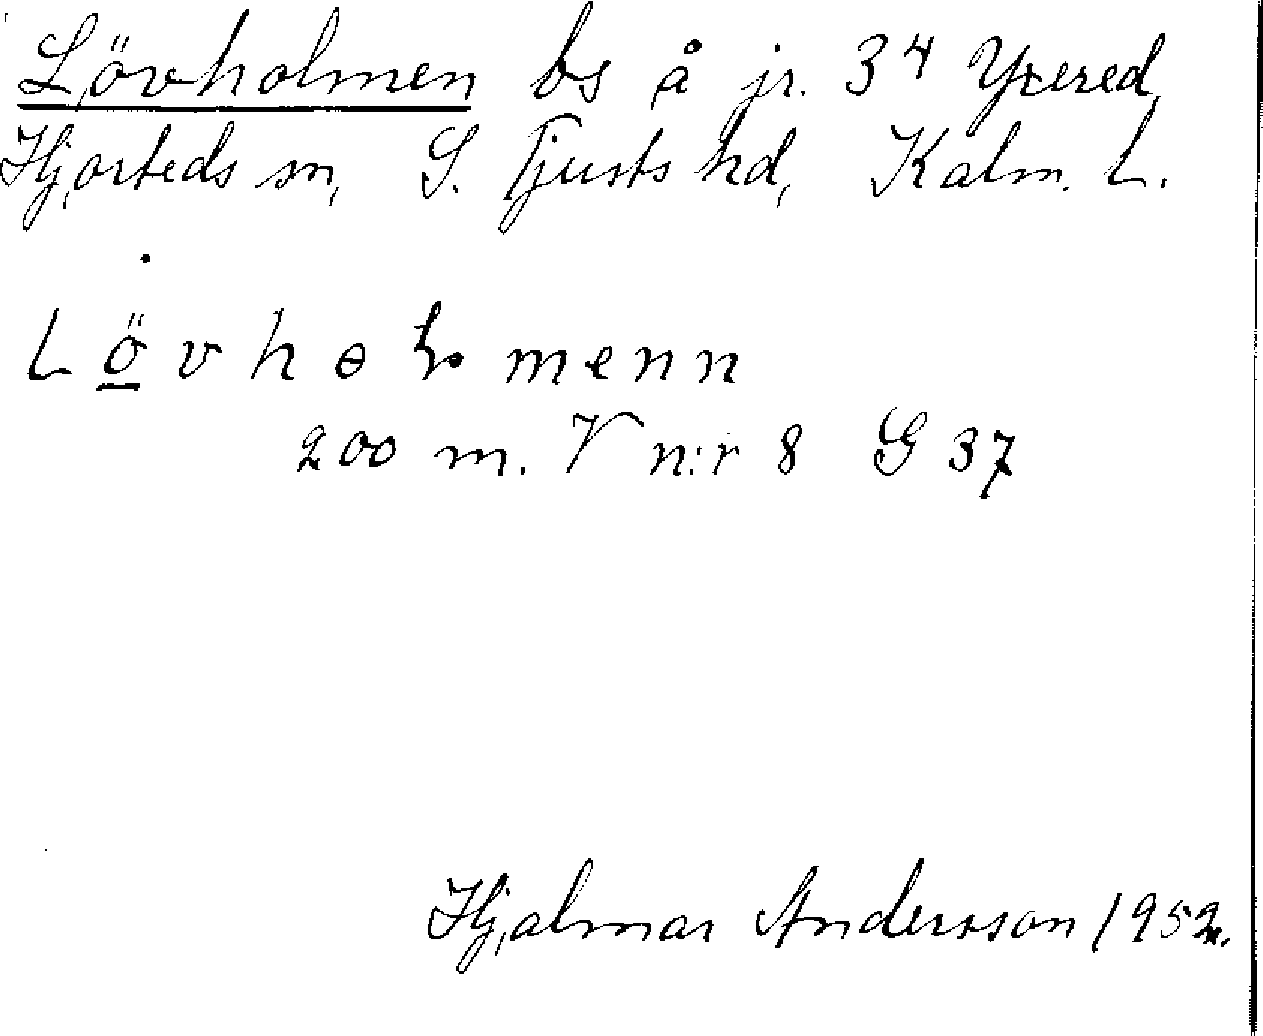 Lövholmen bs å jr. 34 Yxered,
Hjorteds sn, S. Tjusts hd, Kalm. L.
200 m. V n:r 8 G 37
Hjalmar Andersson 1952.